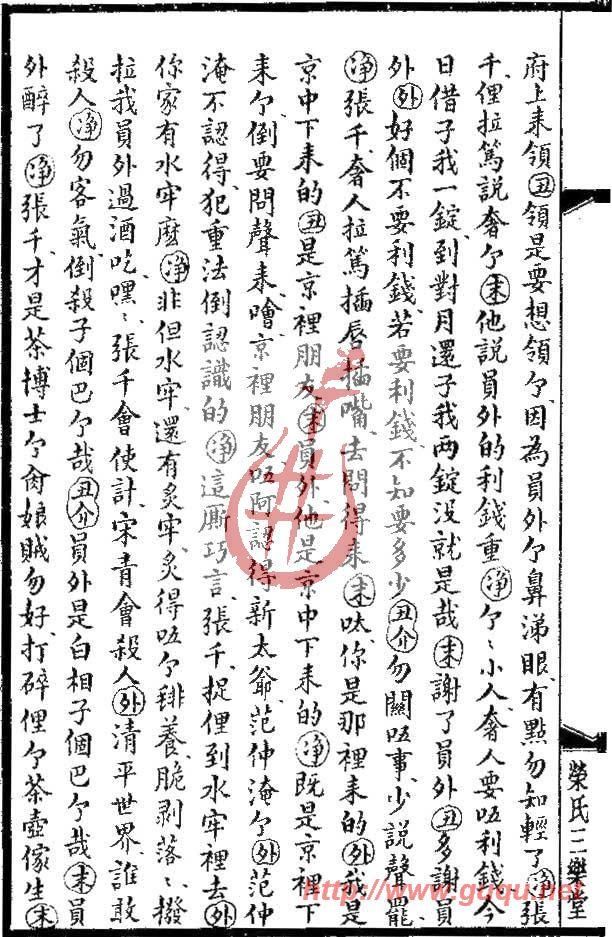 府上来領丑領是要想領个因為員外个鼻涕眼有點勿知輕了净張
千俚拉篤説奢个末他説員外的利錢重净个、小人奢人要唔利錢今
日借子我一錠到對月還子我两錠没就是哉末謝了員外丑多謝員
外外好個不要利錢若要利錢不知要多少丑介勿關唔事少説聲罷
净張千奢人拉篤插唇插嘴去問得来末呔你是那裡来的外我是
京中下来的丑是京裡朋友末員外他是京中下来的净既是京裡下
来个倒要問聲来噲京裡朋友唔阿認得新太爺范仲淹个外范仲
淹不認得犯重法倒認識的净這厮巧言張千捉俚到水牢裡去外
你家有水牢麽净非但水牢還有炙牢炙得唔个𦙶養脆剥落、撥
拉我員外過酒吃嘿、張千會使計宋青會殺人外清平世界誰敢
殺人净勿客氣倒殺子個巴个哉丑介員外是白相子個巴个哉末員
外醉了净張千才是茶博士个肏娘賊勿好打碎俚个茶壺傢生末
榮氏三樂堂
http://www.guqu.net